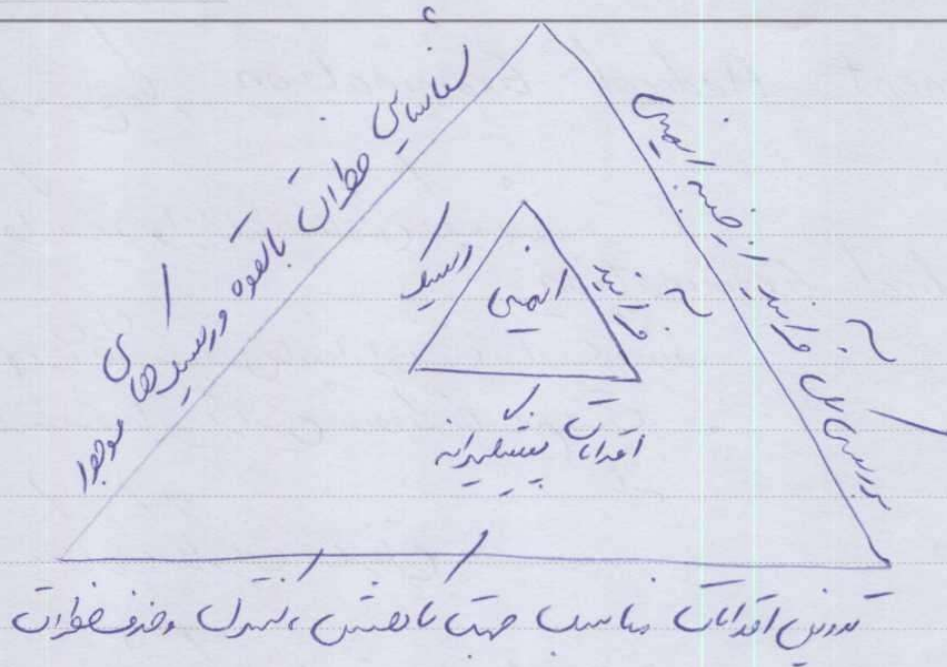 شناسایی خطرات بالقوه و ریسک های موجود
بررسی کل فرآیند از جنبه ایمنی
ریسک
فرآیند
ایمنی
اقدامات پیشگیرانه
تدوین اقدامات مناسب جهت کاهش ، کنترل و حذف خطرات